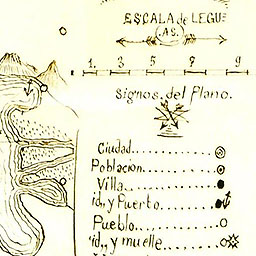 ESCALA de LEGUE
(AS.)
1. 3. 5. 7 9
Signos del Plano.
Ciudad
Poblacion
Villa
id,, y Puerto
Pueblo
id,, y muelle